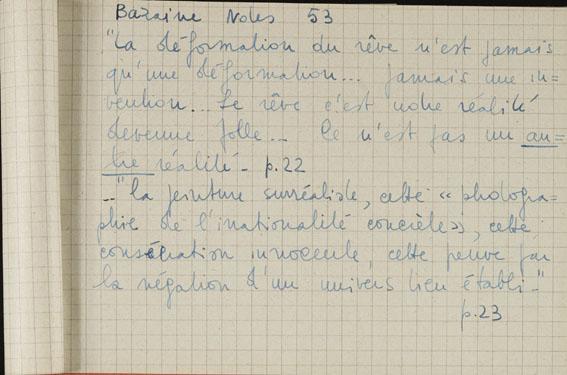 Bazaine Notes 53
"La déformation du rêve n'est jamais
qu'une déformation... jamais une in=
vention... Le rêve c'est notre réalité
devenue folle... Ce n'est pas un au=
tre réalité - p.22
..."La peinture surréaliste, cette « photogra=
phie de l'irrationalité concrète», cette
consécration innocente, cette preuve par
la négation d'un univers bien établi -"
p.23